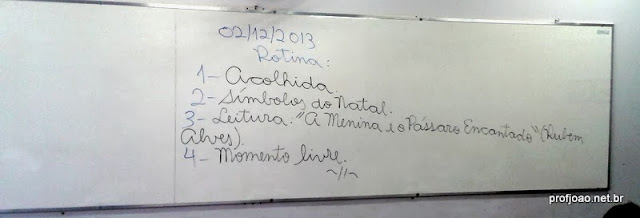 02/12/2013.
Rotina:
1- Acolhida.
2- Símbolos do Natal.
3- Leitura: "A Menina e o Pássaro Encantado" (Rubem
Alves).
4- Momento livre.
~//~
profjoao.net.br